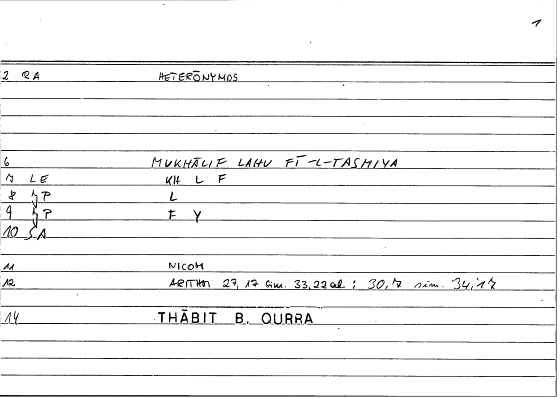 1
2 RA HETERŌNYMOS
6 MUKHĀLIF LAHU FĪ-L-TASMIYA
7 LE KH L F
8 P L
9 P F Y
10 SA
11 NICOM
12 ARITHM 27, 17 sim. 33,22 al ; 30,7 sim. 34,17
14 THĀBIT B. QURRA